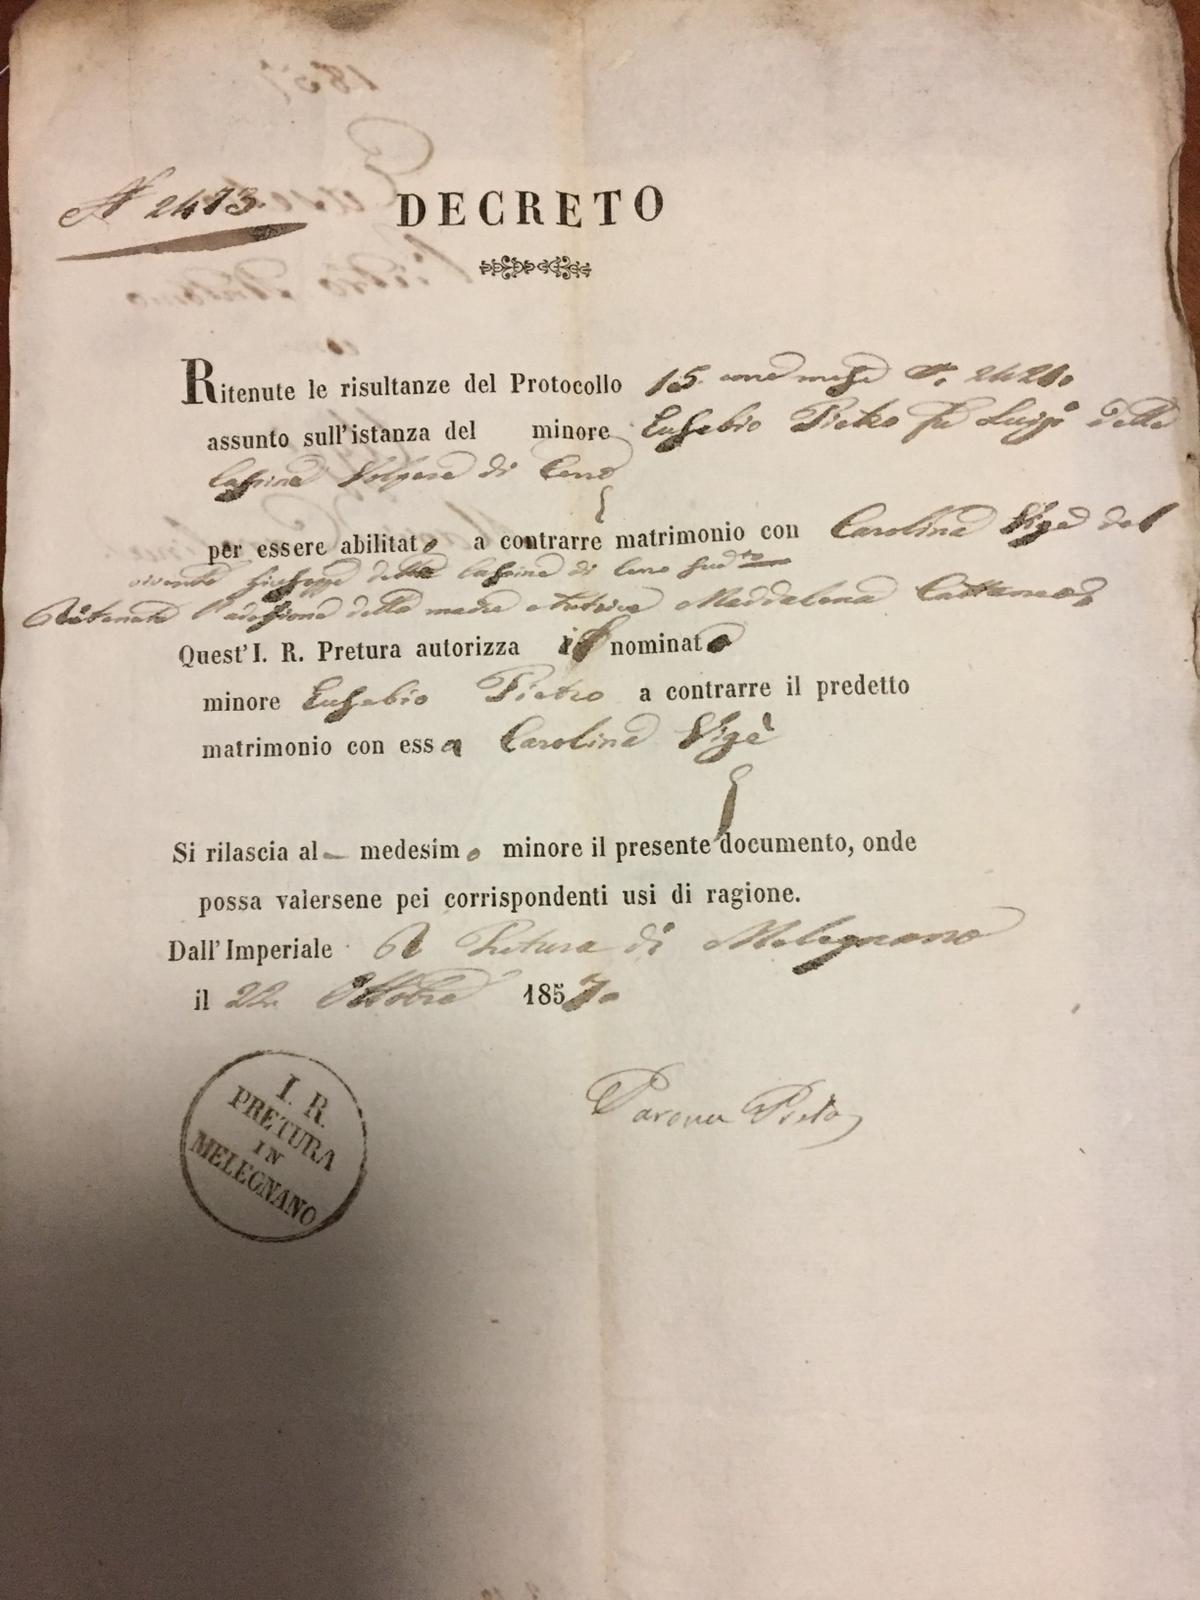 N° 2473.
DECRETO
Ritenute le risultanze del Protocollo 15. and.e mese N.° 2420.
assunto sull'istanza del minore Eusebio Pietro fu Luigi della
Cassina Volpera di Cerro
per essere abilitato a contrarre matrimonio con Carolina Vigè del
vivente Giuseppe della Cassina di Cerro sud.to
Ritenuta l'adesione della madre tutrice Maddalena Cattaneo,
Quest'I. R. Pretura autorizza il nominato
minore Eusebio Pietro a contrarre il predetto
matrimonio con essa Carolina Vigè
Si rilascia al medesimo minore il presente documento, onde
possa valersene pei corrispondenti usi di ragione.
Dall'Imperiale R Pretura di Melegnano
il 22. Ottobre 1857.
Parona
I. R.
PRETURA
IN
MELEGNANO